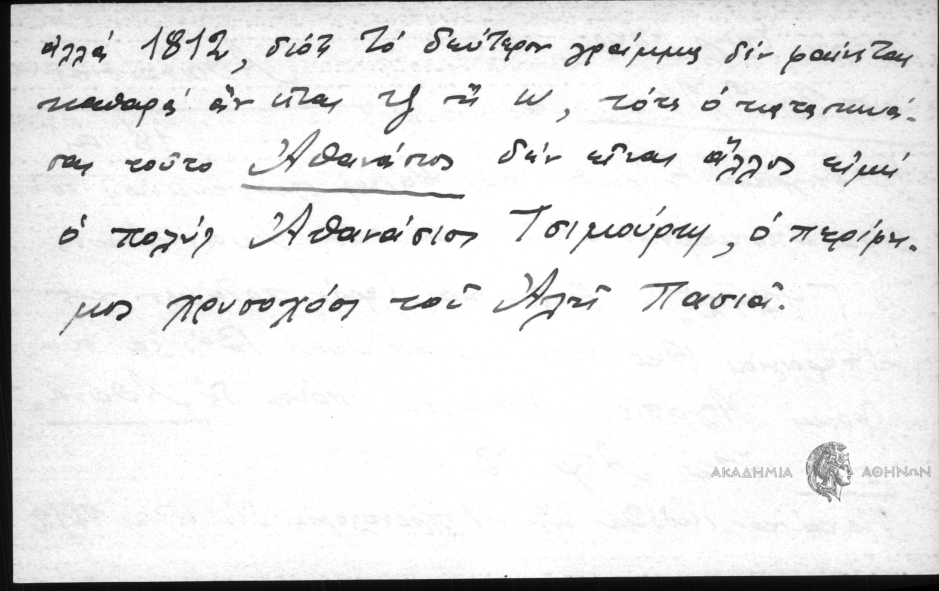 ἀλλά 1812, διότι τό δεύτερον γράμμα δέν φαίνεται
καθαρά ἄν εἶναι ἤ ω, τότε ὁ κατασκευά-
σας τοῦτο Ἀθανάσιος δέν εἶναι ἄλλος εἰμή
ὁ πολύς Ἀθανάσιος Τσιμούρης, ὁ περίφη-
μος χρυσοχόος τοῦ Ἀλῆ Πασιᾶ.
ΑΚΑΔΗΜΙΑ ΑΘΗΝΩΝ